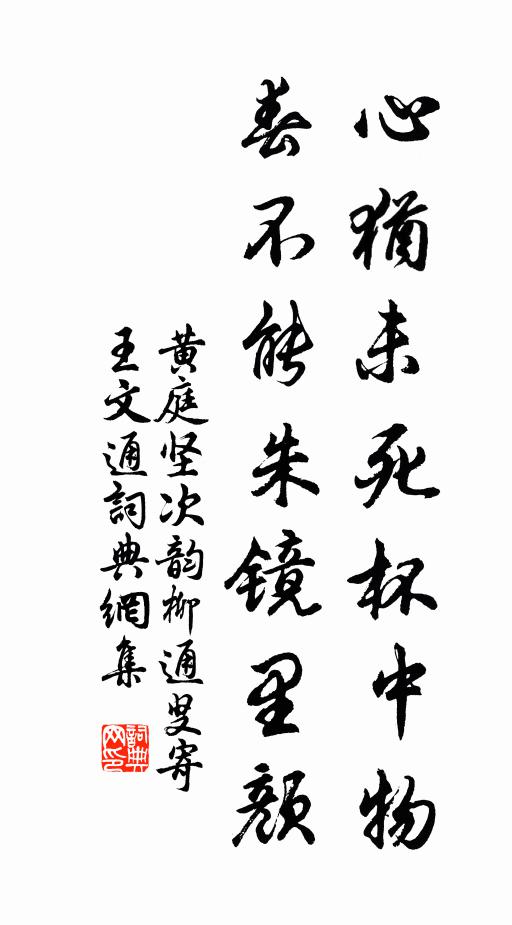 心猶未死杯中物
春不能朱镜里颜
黄庭坚次韵柳通叟寄
王文通詞典網集
詞典
网印